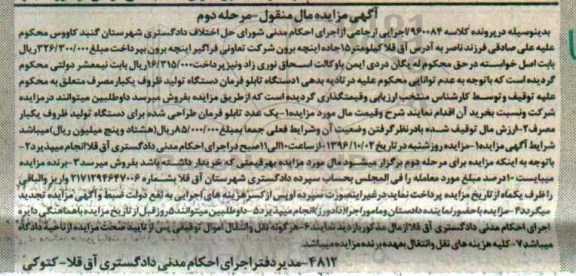 آگهی مزایده مال منقول - مرحله دوم
بدینوسیله در پرونده کلاسه ۹۶۰۰۸۴/اجرایی ارجاعی از اجرای احکام مدنی شورای حل اختلاف دادگستری شهرستان گنبد کاووس محکوم
علیه علی صادقی فرزند ناصر به آدرس آق قلا کیلومتر ۱۵ جاده اینچه برون شرکت تعاونی فراگیر اینچه برون بپرداخت مبلغ ۳۲۶/۳۰۰/۰۰۰ ریال
بابت اصل خواسته در حق محکوم له یگان دردی ایمن باوکالت اسحاق نوری زاد ونیز پرداخت ۱۶/۳۱۵/۰۰۰ ریال بابت نیمعشر دولتی محکوم
گردیده است که باتوجه به عدم توانایی محکوم علیه در تادیه بدهی ۱ دستگاه تابلو فرمان دستگاه تولید ظروف یکبار مصرف متعلق به محکوم
علیه توقیف و توسط کارشناس منتخب ارزیابی وقیمتگذاری گردیده است که از طریق مزایده بفروش میرسد داوطلبین میتوانند در مزایده
شرکت ونسبت بخرید آن اقدام نمایند شرح وقیمت مال مورد مزایده ۱- یک عدد تابلو فرمان طراحی شده برای دستگاه تولید ظروف یکبار
مصرف ۲- ارزش مال توقیف شده بادرنظر گرفتن وضعیت آن وشرایط فعلی جمعا بمبلغ ۸۵/۰۰۰/۰۰۰ ریال(هشتاد وپنج میلیون ریال)میباشد
شرایط آگهی مزایده ۱- مزایده روز شنبه در تاریخ ۱۳۹۶/۱۰/۰۲ از ساعت ۱۰ الی ۱۱ صبح در اجرای احکام مدنی دادگستری آق قلا انجام میپذیرد ۲-
باتوجه به اینکه مزایده برای مرحله دوم برگزار میشود مال مورد مزایده بهرقیمتی که خریدار داشته باشد بفروش میرسد ۳- برنده مزایده
میبایست ۱۰ درصد مبلغ مورد معامله را فی المجلس بحساب سپرده دادگستری شهرستان آق قلا بشماره ۲۱۷۱۲۹۴۶۴۷۰۰۶ واریز والباقی
را ظرف یکماه از تاریخ مزایده پرداخت نماید در غیر اینصورت سپرده او پس از کسر هزینه های اجرایی به نفع دولت ضبط و آگهی مزایده تجدید
میگردد ۴- مزایده باحضور نماینده دادستان و مامور اجرا(دادورز)انجام میپذیرد ۵- داوطلبین میتوانند ۵ روز قبل از تاریخ مزایده باهماهنگی دایره
اجرای احکام مدنی دادگستری آق قلا از مال مذکور بازدید نمایند ۶- هرگونه نقل وانتقال اموال توقیفی پس از تایید صحت مزایده از ناحیه دادگاه
میباشد ۷- کلیه هزینه های نقل وانتقال بعهده برنده مزایده میباشد.
۴۸۱۲- مدیر دفتر اجرای احکام مدنی دادگستری آق قلا- کتوکی